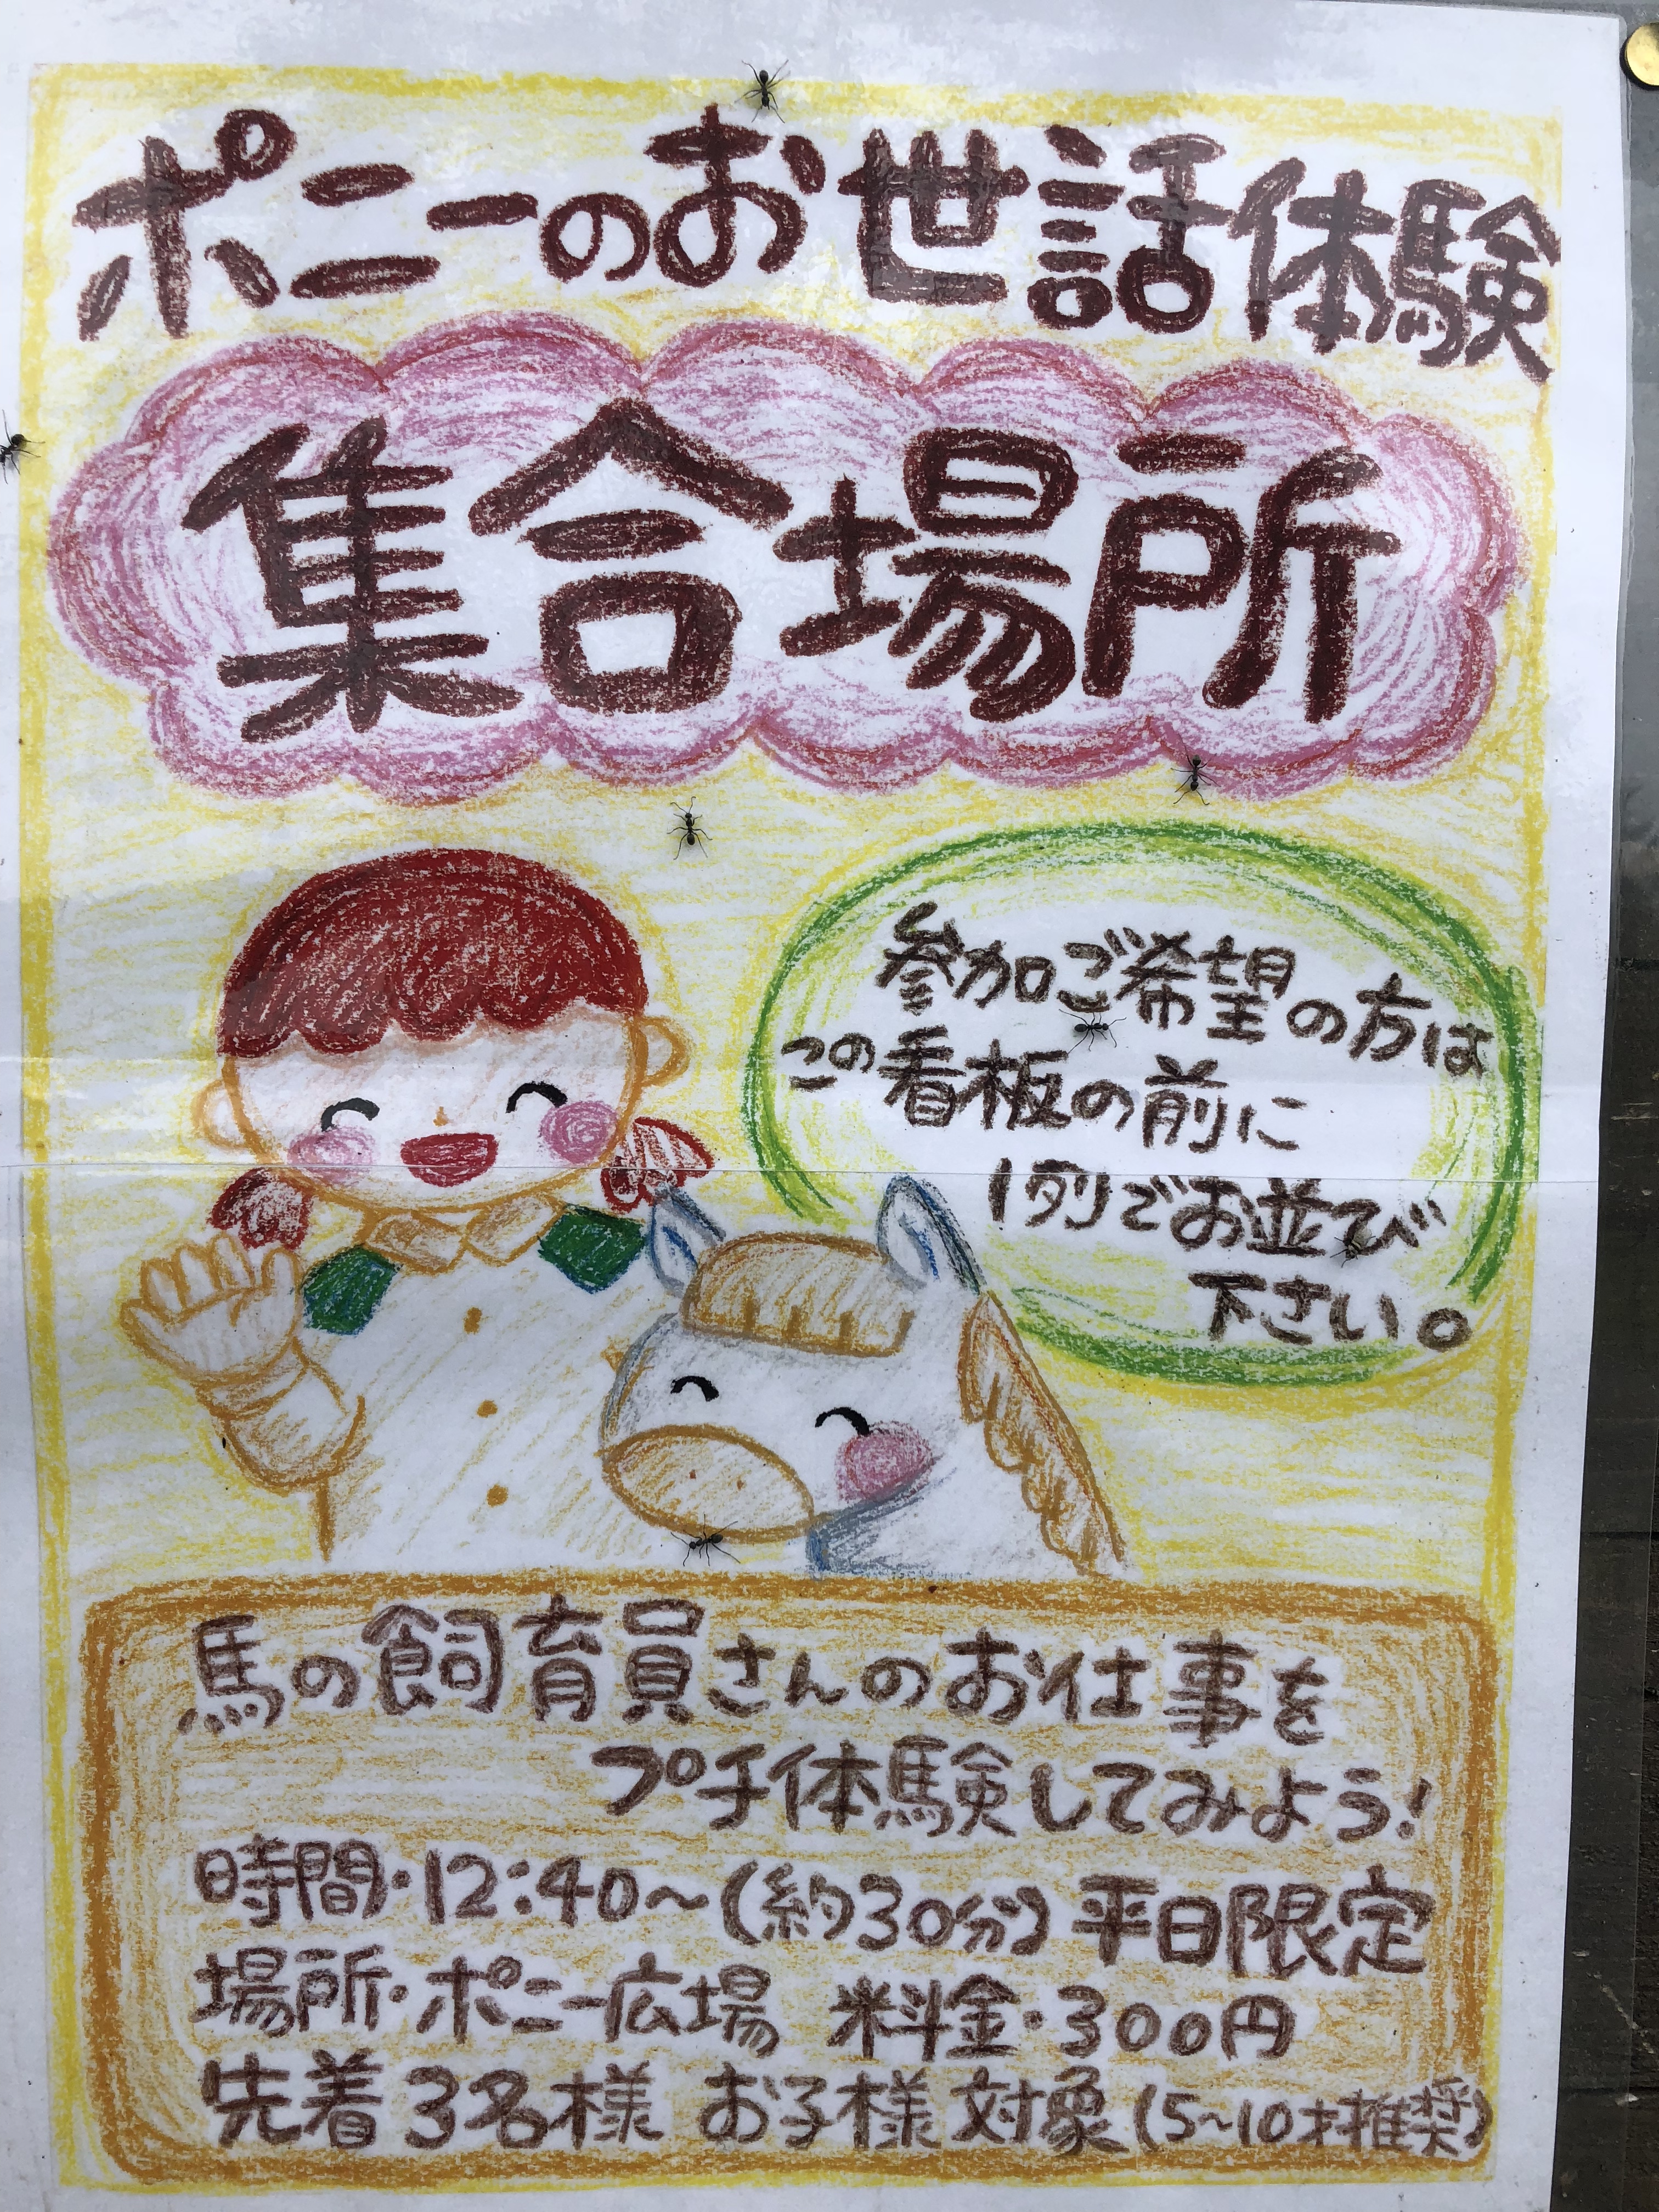 ポニーのお世話体験
集合場所
参加ご希望の方は
この看板の前に
1列でお並び
下さい。
馬の飼育員さんのお仕事を
プチ体験してみよう!
時間・12:40~(約30分)平日限定
場所・ポニー広場 料金・300円
先着3名様 お子様対象(5~10才推奨)